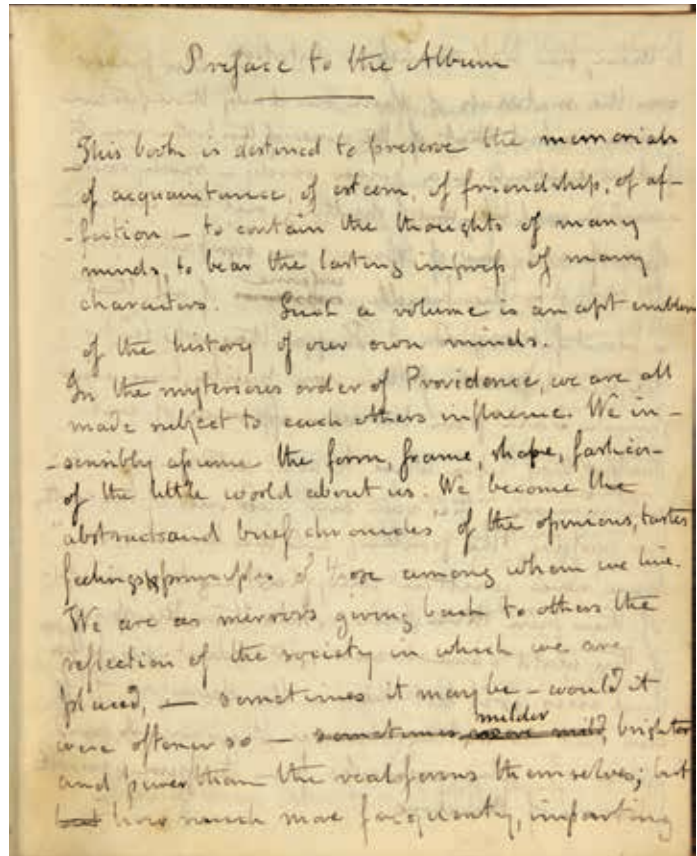 Preface to the Album
This book is destined to preserve the memorials
of acquaintance, of esteem, of friendship, of af-
-fection – to contain the thoughts of many
minds, to bear the lasting impress of many
characters. Such a volume is an apt emblem
of the history of our own minds.
In the mysterious order of Providence, we are all
made subject to each others influence. We in-
-sensibly assume the form, frame, shape, fashion
of the little world about us. We become the
abstracts and brief chronicles" of the opinions, tastes
feelings & principles of those among whom we live.
We are as mirrors giving back to others the
reflection of the society in which we are
placed, – sometimes it may be – would it
were oftener so – sometimes milder
more mild, brighter
and purer than the real forms themselves; but
but how much more frequently, imparting